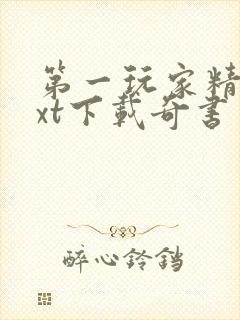 第一玩家精
xt下载奇书
醉心铃铛